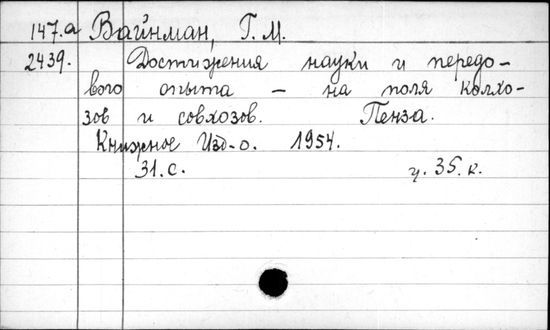 147.a Вайнман, Г. М.
2439. Достижения науки и передо-
вого опыта — на поля колхо-
зов и совхозов. Пенза.
Книжное Изд-о. 1954.
31.с. ц. 35. к.